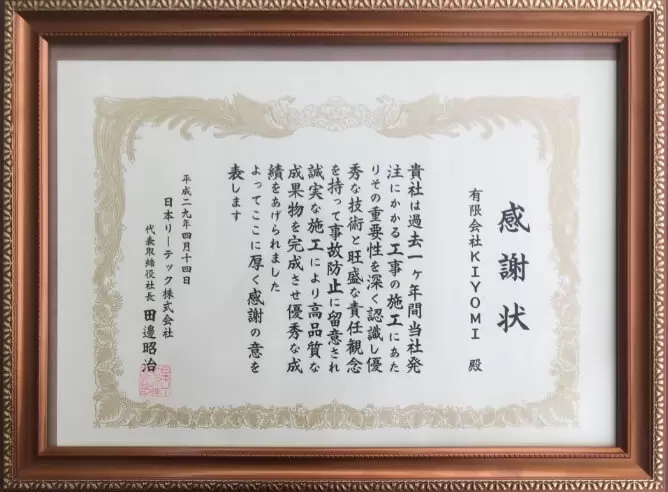 感謝状
有限会社KIYOMI 殿
貴社は過去一ヶ年間当社発
注にかかる工事の施工にあた
りその重要性を深く認識し優
秀な技術と旺盛な責任観念
を持って事故防止に留意され
誠実な施工により高品質な
成果物を完成させ優秀な成
績をあげられました
よってここに厚く感謝の意を
表します
平成二九年四月十四日
日本リーテック株式会社
代表取締役社長 田邉昭治